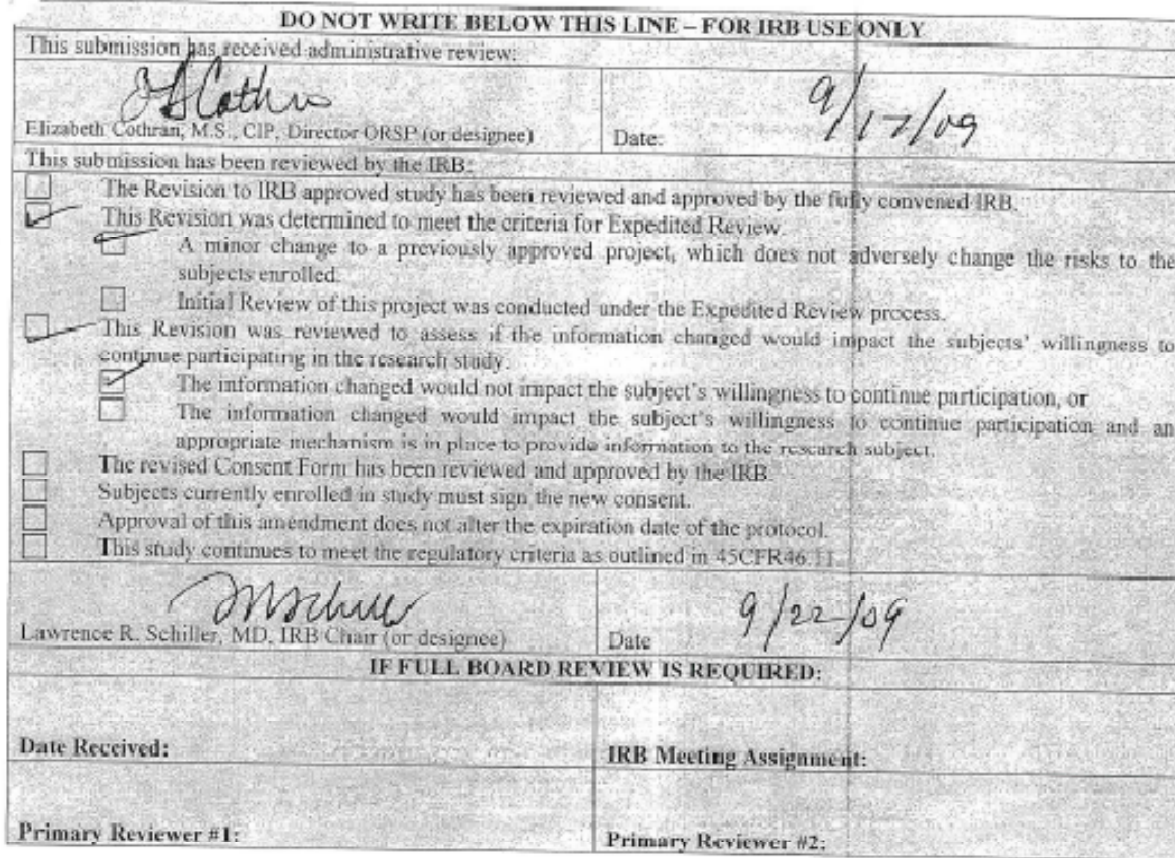 DO NOT WRITE BELOW THIS LINE – FOR IRB USE ONLY
This submission has received administrative review:
9/17/09
Elizabeth Cothran, M.S., CIP, Director ORSP (or designee)
Date:
This submission has been reviewed by the IRB:
The Revision to IRB approved study has been reviewed and approved by the fully convened IRB.
This Revision was determined to meet the criteria for Expedited Review.
A minor change to a previously approved project, which does not adversely change the risks to the
subjects enrolled.
Initial Review of this project was conducted under the Expedited Review process.
This Revision was reviewed to assess if the information changed would impact the subjects' willingness to
continue participating in the research study.
The information changed would not impact the subject's willingness to continue participation, or
The information changed would impact the subject's willingness to continue participation and an
appropriate mechanism is in place to provide information to the research subject.
The revised Consent Form has been reviewed and approved by the IRB.
Subjects currently enrolled in study must sign the new consent.
Approval of this amendment does not alter the expiration date of the protocol.
This study continues to meet the regulatory criteria as outlined in 45CFR46.11
9/22/09
Lawrence R. Schiller, MD, IRB Chair (or designee)
Date
IF FULL BOARD REVIEW IS REQUIRED:
Date Received:
IRB Meeting Assignment:
Primary Reviewer #1:
Primary Reviewer #2: